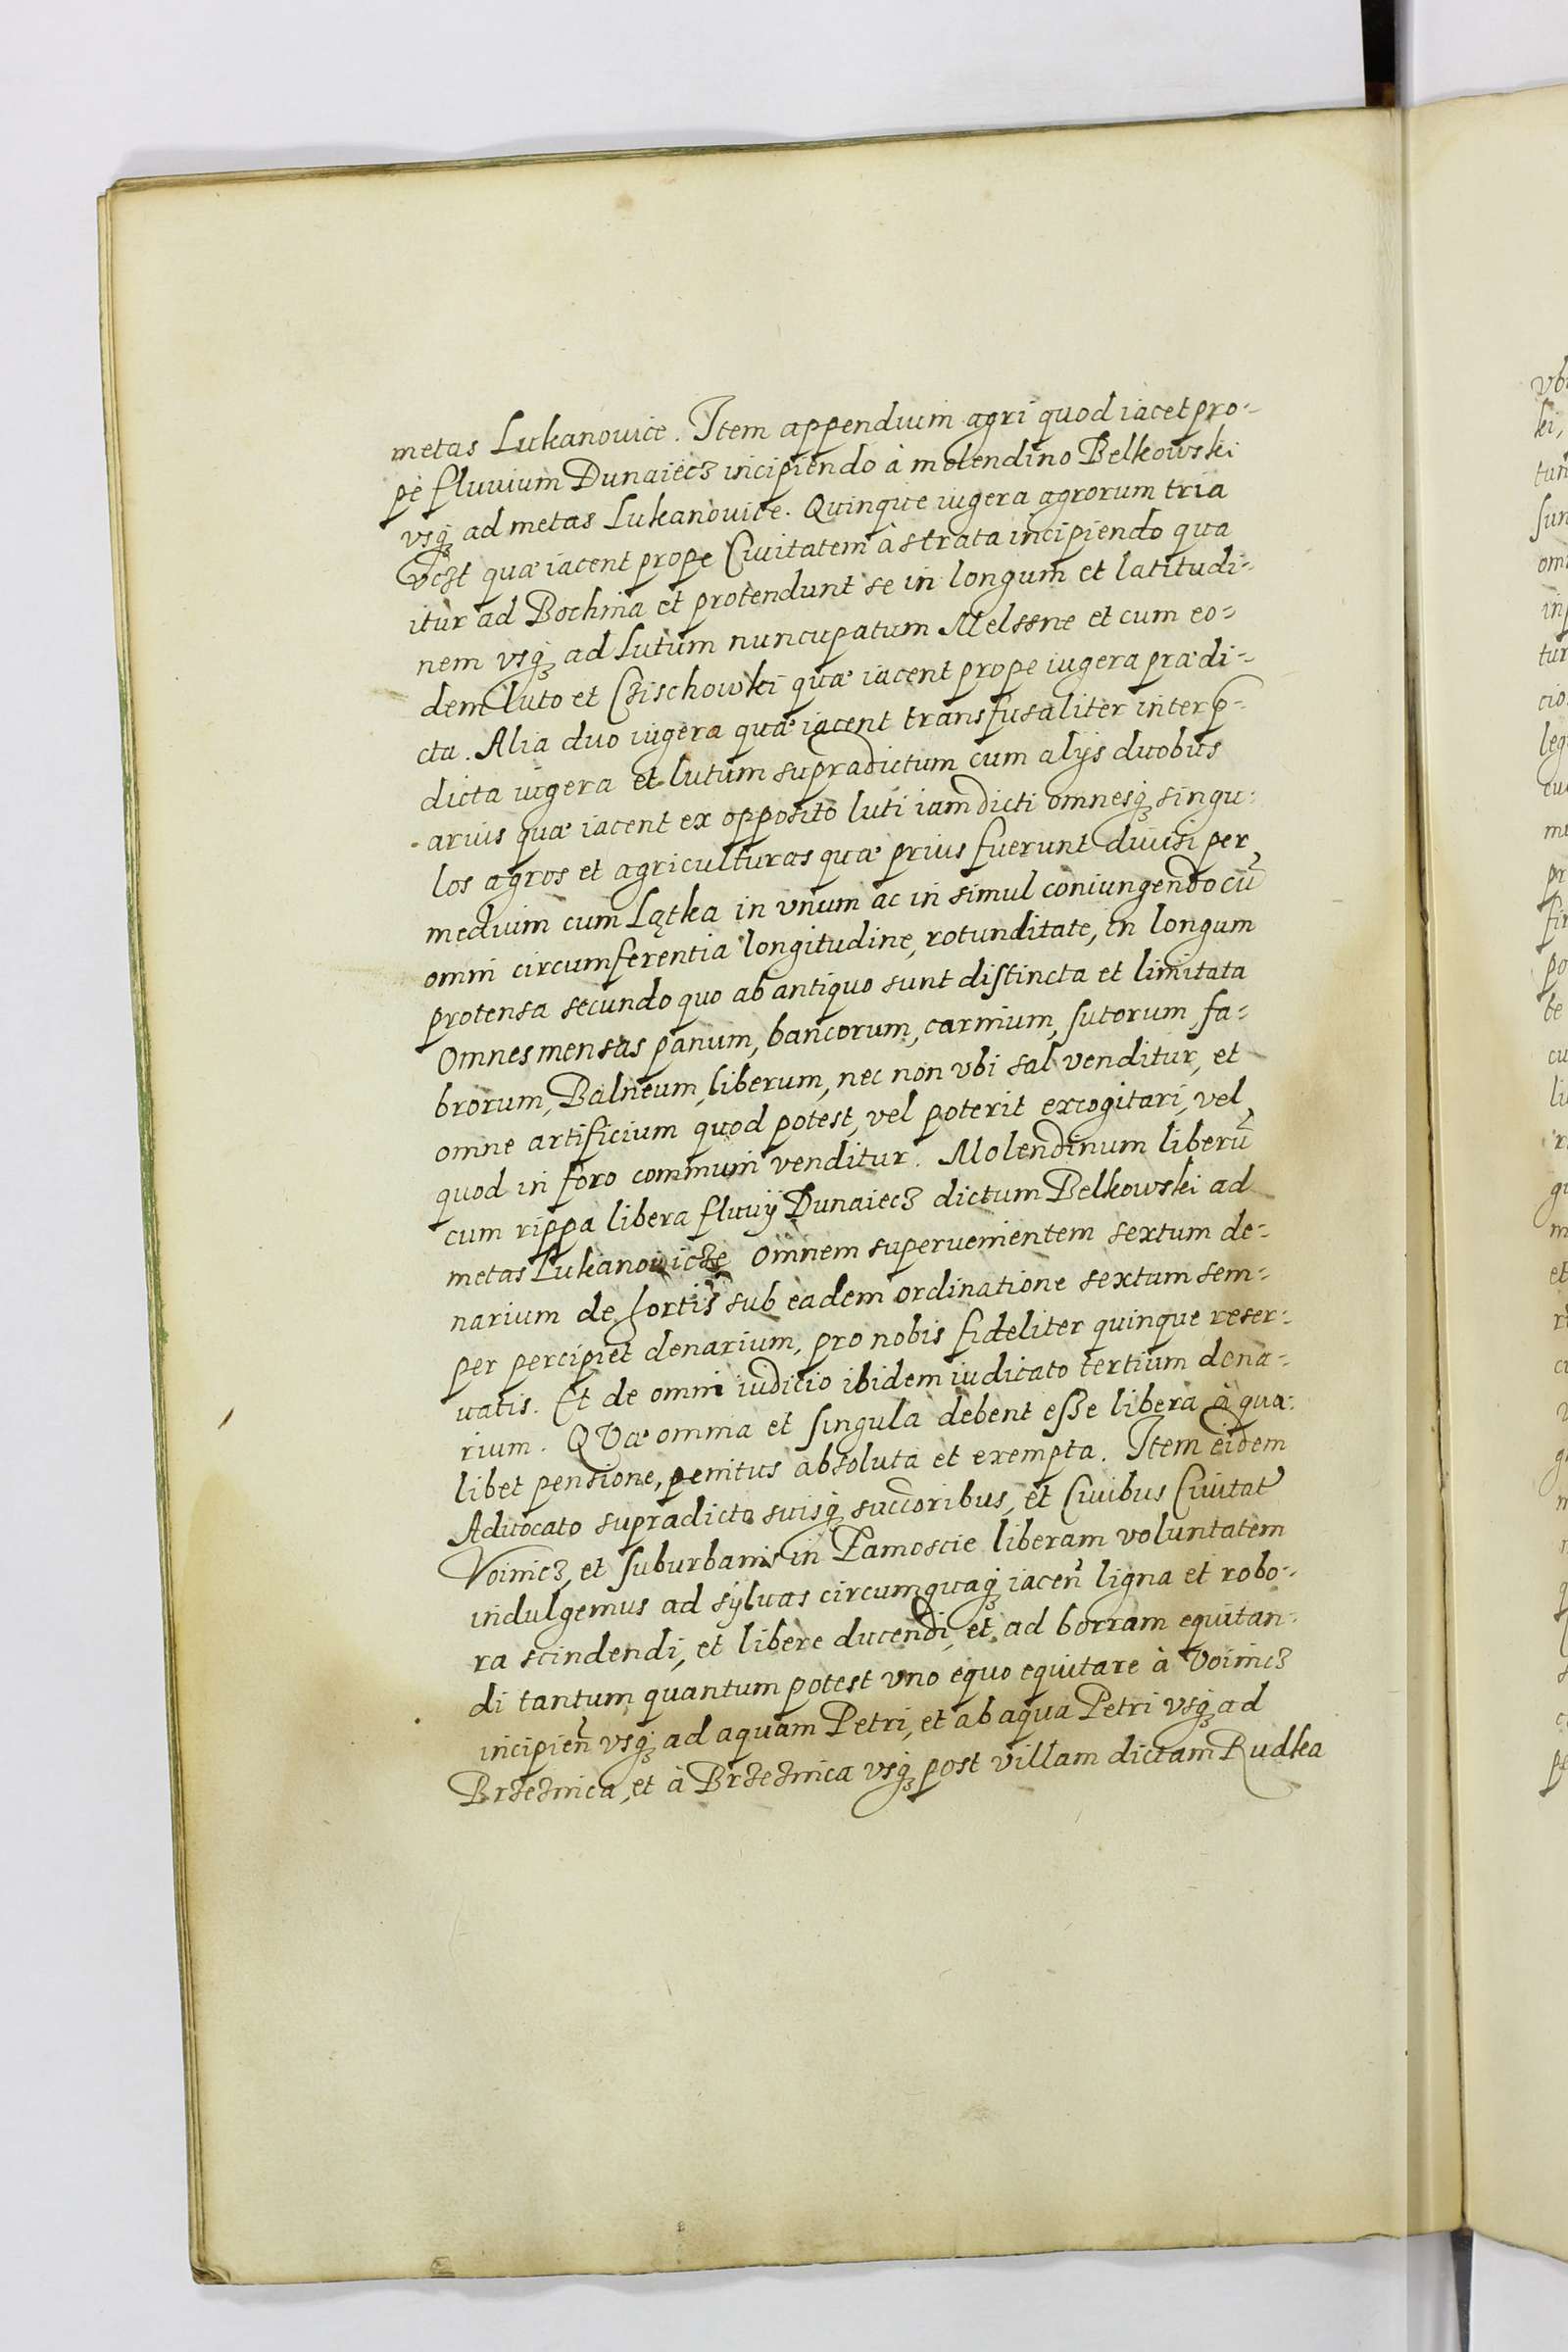 metas Lukanouice. Item appendium agri quod iacet pro-
pe fluuium Dunaiecz incipiendo à molendino Belkowski
vsq3 ad metas Lukanouice. Quinque iugera agrorum tria
vczt quæ iacent prope Ciuitatem à strata incipiendo qua
itur ad Bochnia et protendunt se in longum et latitudi-
nem vsq3 ad lutum nuncupatum Melssne et cum eo-
dem luto et Czischowski quæ iacent prope iugera prædi-
cta. Alia duo iugera quæ iacent transfusaliter inter p-
dicta iugera et lutum supradictum cum alijs duobus
aruis quæ iacent ex opposito luti iamdicti omnesq3 singu-
los agros et agriculturas quæ prius fuerunt diuisi per
medium cum Lątka in vnum ac in simul coniungendo cũ
omni circumferentia longitudine, rotunditate, in longum
protensa secundo quo ab antiquo sunt distincta et limitata
Omnes mensas panum, bancorum, carnium, sutorum fa-
brorum, Balneum, liberum, nec non vbi sal venditur, et
omne artificium quod potest, vel poterit excogitari, vel
quod in foro communi venditur. Molendinum liberũ
cum rippa libera fluuij Dunaiecz dictum Belkowski ad
metas Lukanouicze Omnem superuenientem sextum de-
narium de hortis sub eadem ordinatione sextum sem-
per percipiet denarium, pro nobis fideliter quinque reser-
uatis. Et de omni iudicio ibidem iudicato tertium dena-
rium. QVæ omnia et singula debent esse libera à qua-
libet pensione, penitus absoluta et exempta. Item eidem
Aduocato supradicto suisq3 succoribus, et Ciuibus Ciuitat
Voinicz, et suburbanis in Zamoscie liberam voluntatem
indulgemus ad syluas circumquaq3 iacen ligna et robo-
ra scindendi, et libere ducendi, et ad borram equitan-
di tantum quantum potest vno equo equitare à Voinicz
incipien vsq3 ad aquam Petri, et ab aqua Petri vsq3 ad
Brzeznica, et à Brzeznica vsq3 post villam dictam Rudka